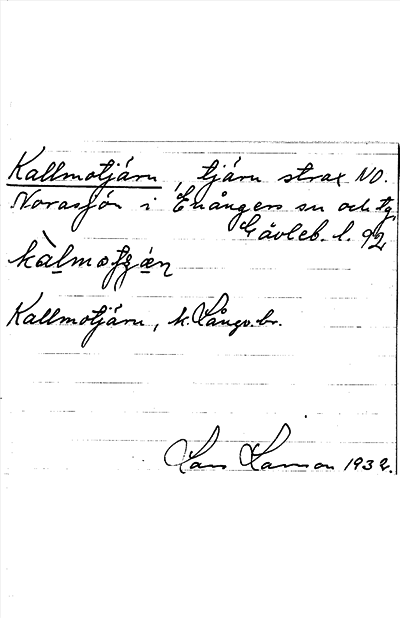 Kallmotjärn, tjärn strax NO.
Norasjön i Enångers sn och tg
Gävleb. l. 92
Kallmotjärn, k. Långv. br.
Lars Larsson 1932.